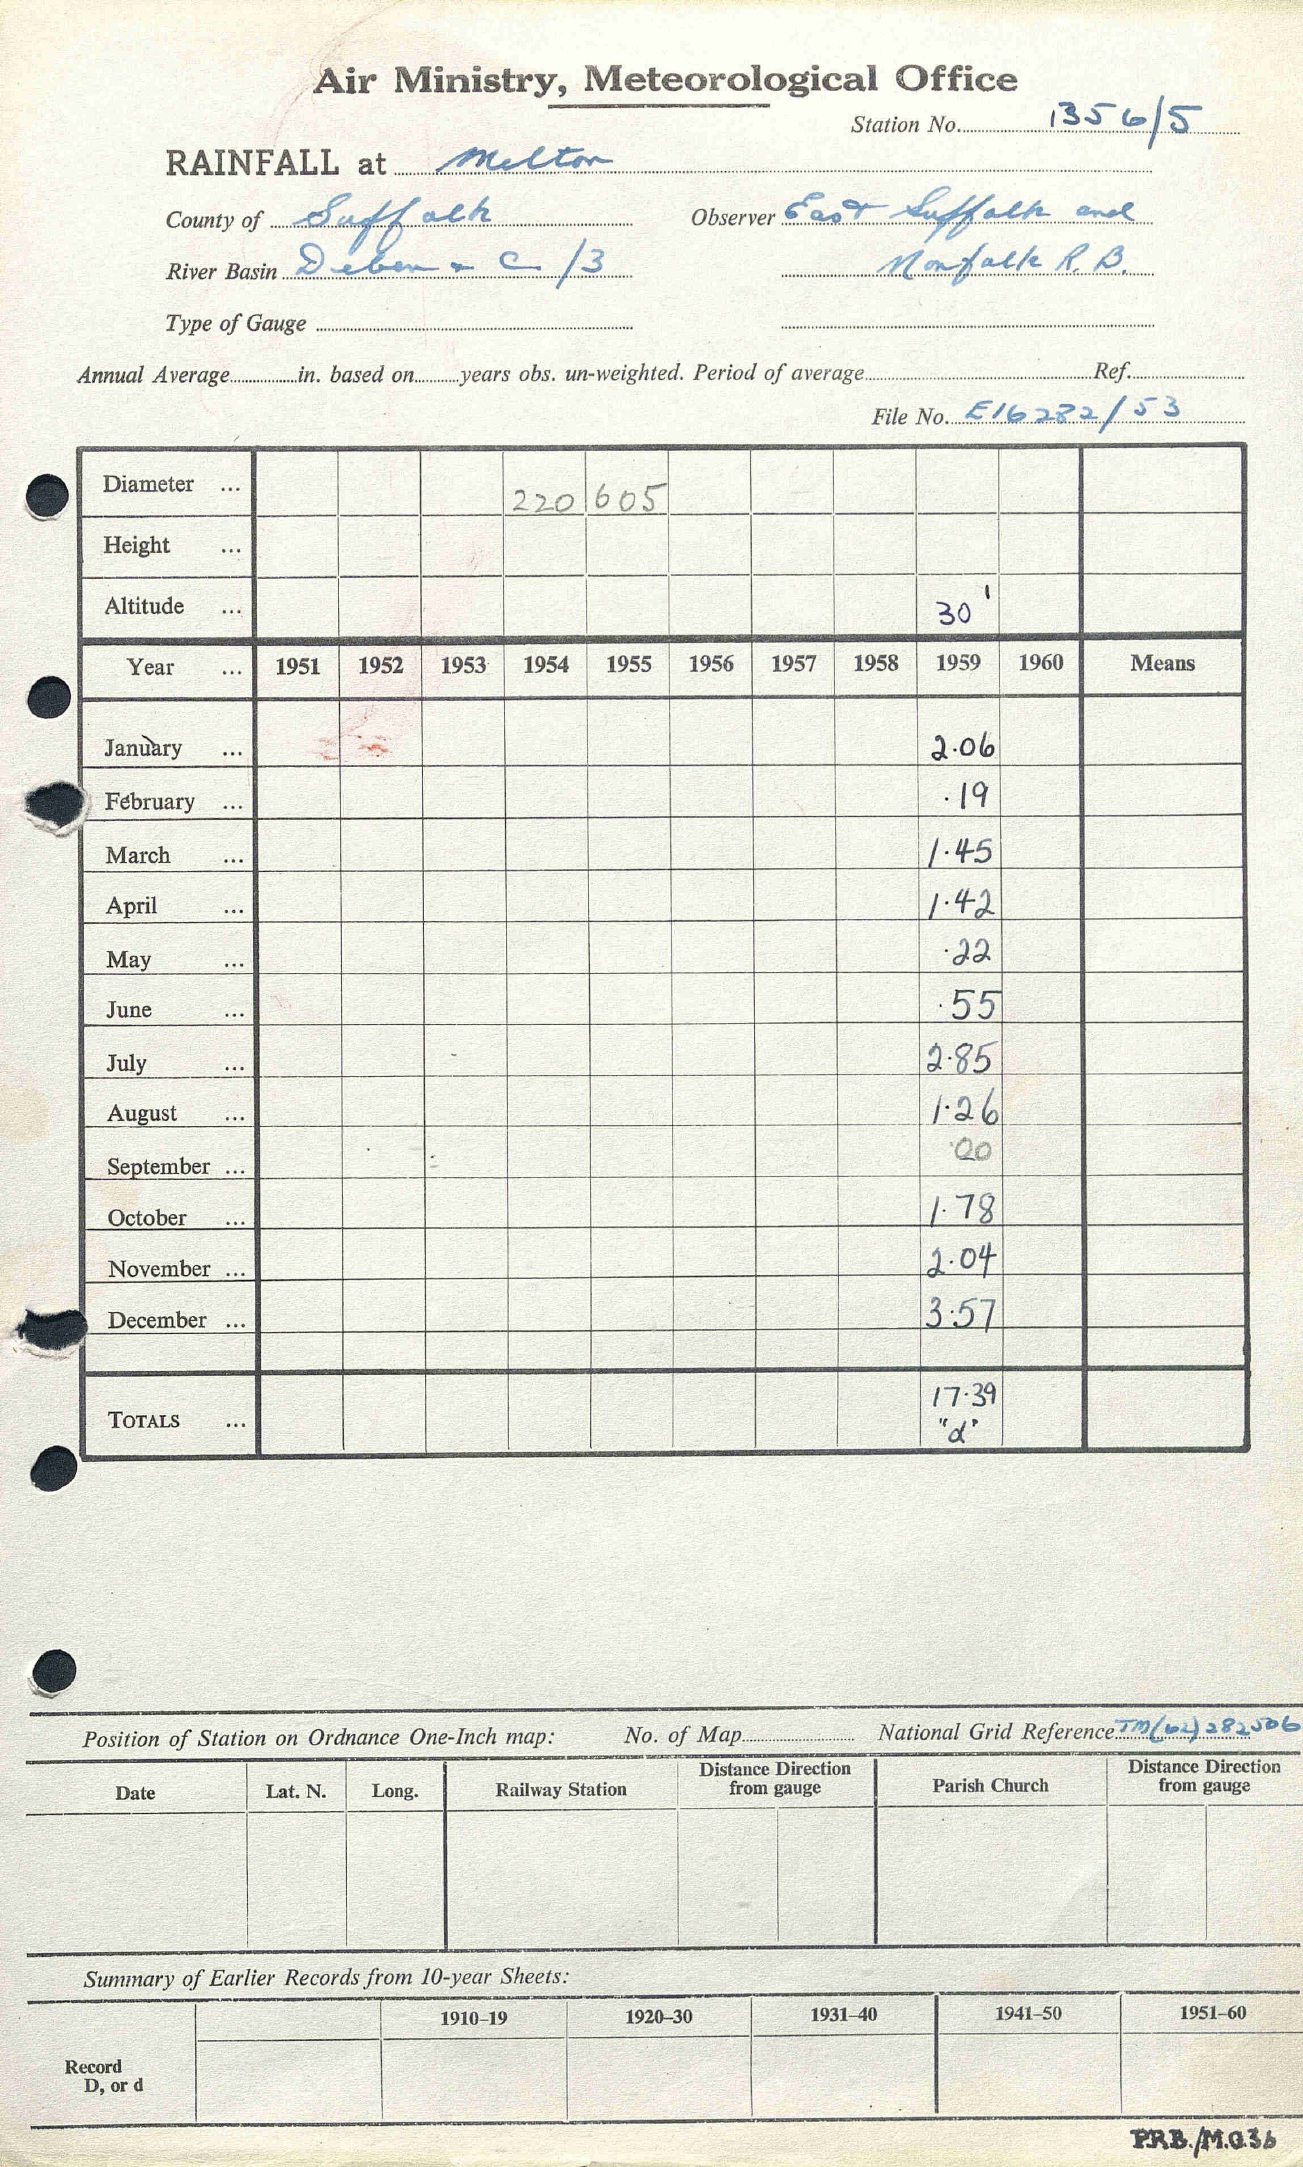 Air Ministry, Meteorological Office
Station No. 1356/5
RAINFALL at Melton
County of Suffolk Observer East Suffolk and
River Basin Deben & C /3 Norfolk R. B.
Type of Gauge
Annual Average in. based on years obs. un-weighted. Period of average Ref.
File No. E16282/53
Diameter ... 220 605
Height ...
Altitude ... 30'
Year ... 1951 1952 1953 1954 1955 1956 1957 1958 1959 1960 Means
January ... 2.06
February ... .19
March ... 1.45
April ... 1.42
May ... .22
June ... .55
July ... 2.85
August ... 1.26
September ... .00
October ... 1.78
November ... 2.04
December ... 3.57
TOTALS ... 17.39
"d"
Position of Station on Ordnance One-Inch map: No. of Map National Grid Reference TM(62)282506
Date Lat. N. Long. Railway Station Distance Direction from gauge Parish Church Distance Direction from gauge
Summary of Earlier Records from 10-year Sheets:
1910–19 1920–30 1931–40 1941–50 1951–60
Record
D, or d
P.R.B./M.O.36